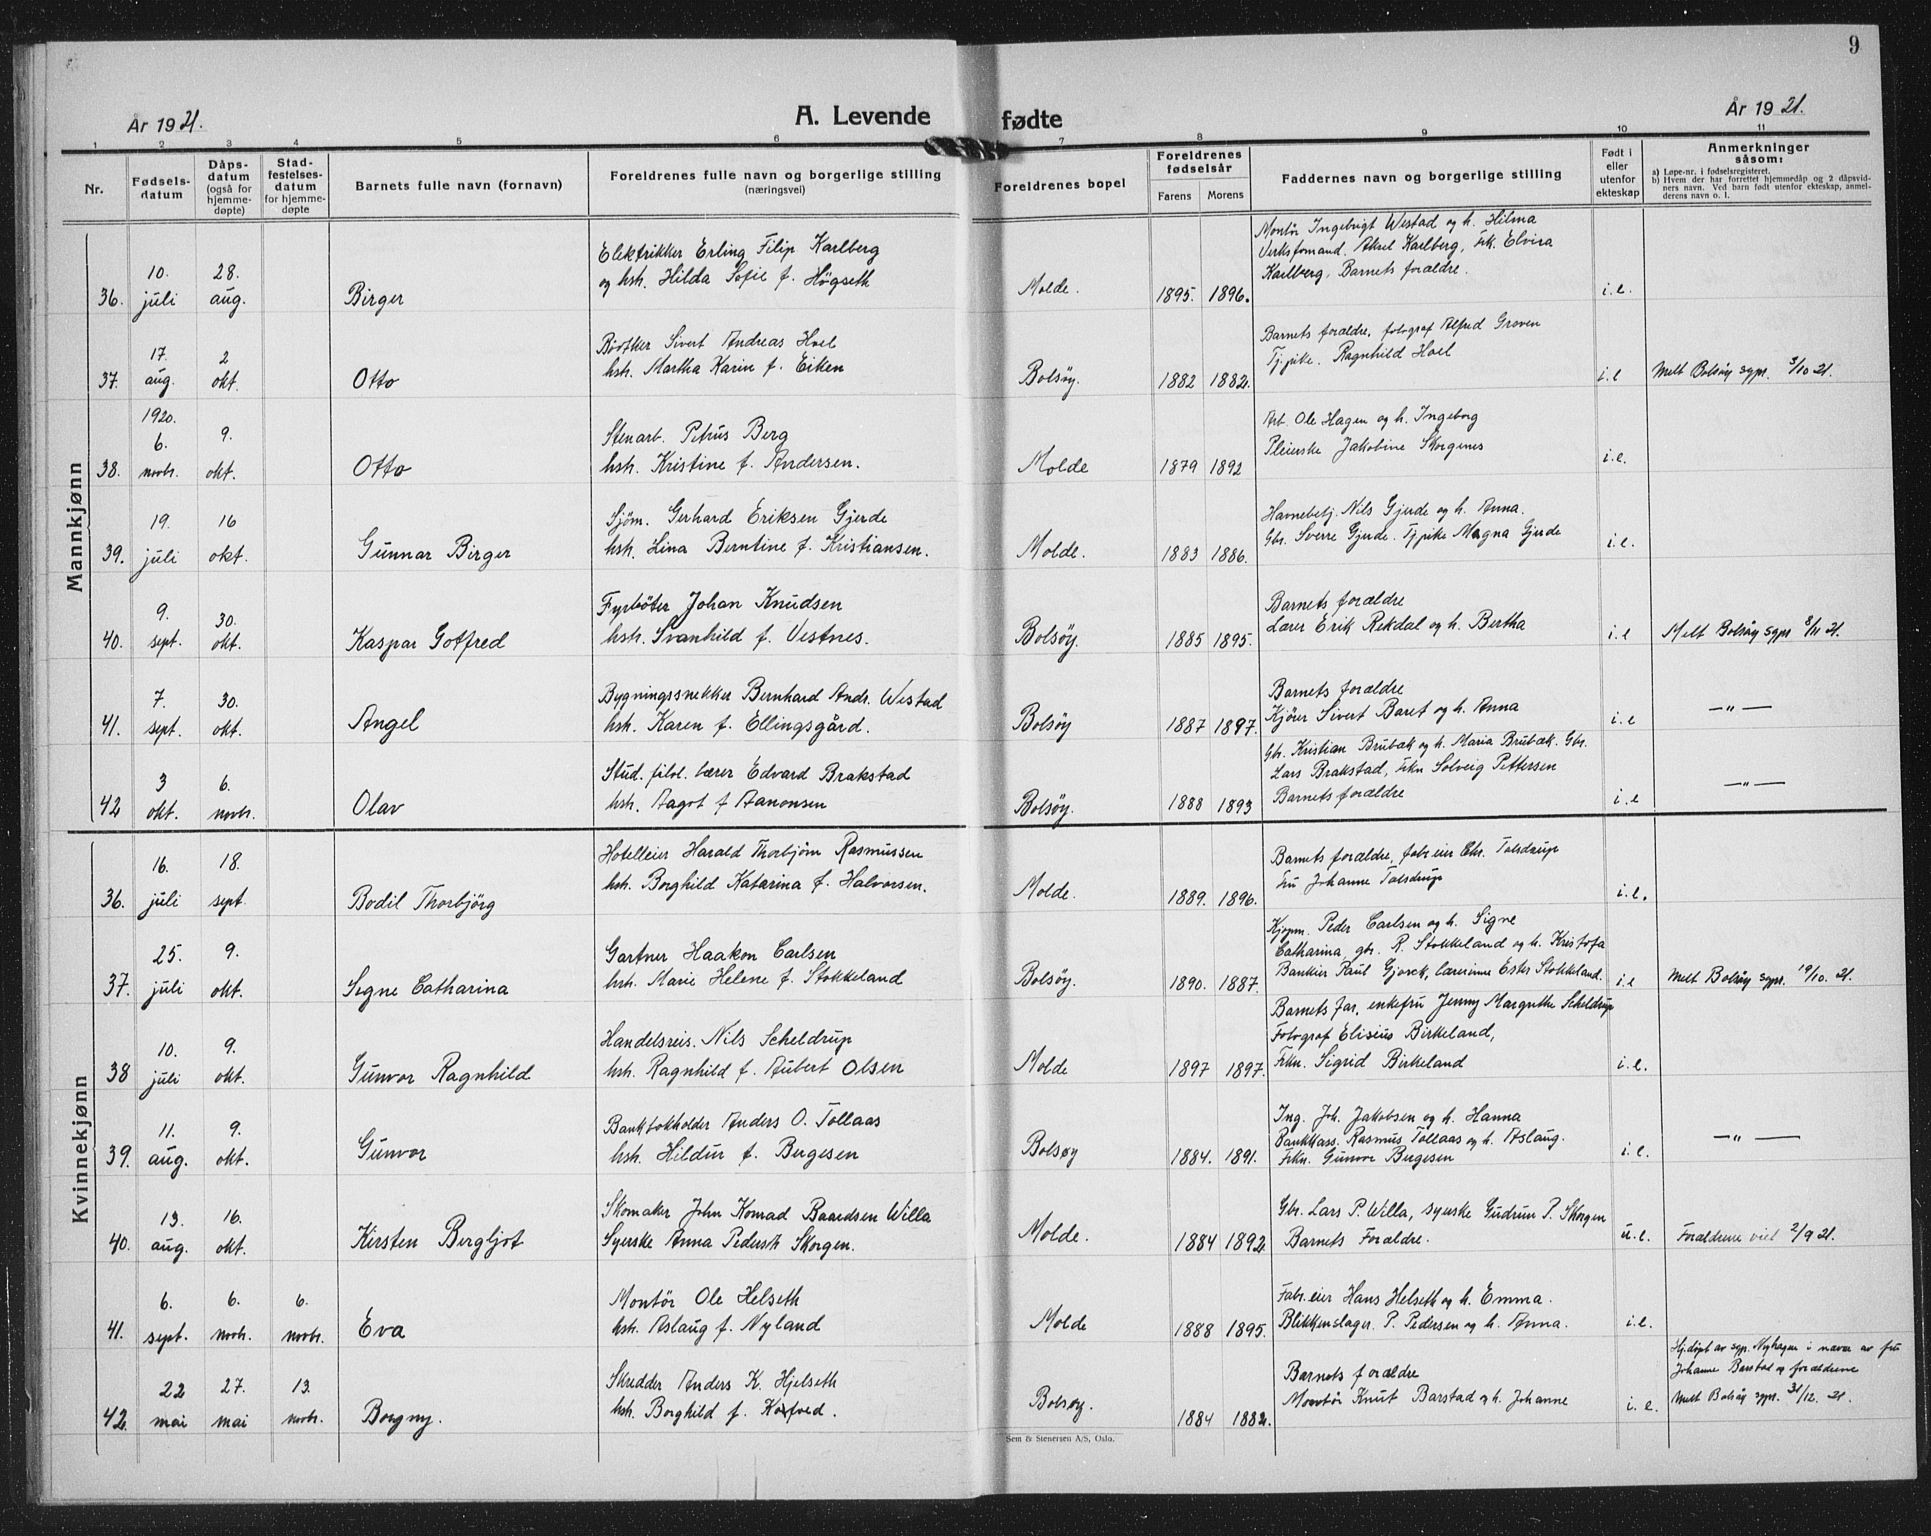 9
År 1921.
A. Levende fødte
År 1921.
1 2 3 4 5 6 7 8 9 10 11
Nr.
Fødsels-
datum
Dåps-
datum
(også for
hjemme-
døpte)
Stad-
festelses-
datum
for hjemme-
døpte
Barnets fulle navn (fornavn)
Foreldrenes fulle navn og borgerlige stilling
(næringsvei)
Foreldrenes bopel
Foreldrenes
fødselsår
Farens Morens
Faddernes navn og borgerlige stilling
Født i
eller
utenfor
ekteskap
Anmerkninger
såsom:
a) Løpe-nr. i fødselsregisteret.
b) Hvem der har forrettet hjemmedåp og 2 dåpsvid-
ners navn. Ved barn født utenfor ekteskap, anmel-
derens navn o. l.
Mannkjønn
36. 10. juli 28. aug. Birger
Elektrikker Erling Filip Karlberg
og hst. Hilda Sofie f. Høgseth
Molde. 1895. 1896.
Montør Ingebrigt Westad og h. Hilma
Verksformand. Aksel Karlberg, frk. Elvira
Karlberg, Barnets forældre.
i.e.
37. 17. aug. 2 okt. Otto
Bødtker Sivert Andreas Hoel
hst. Martha Karin f. Eiken
Bolsøy. 1882 1882.
Barnets forældre, fotograf Alfred Groven
Tjpike. Ragnhild Hoel
i.e
Melt Bolsøy sgpr. 3/10 21.
38. 1920. 6. novbr. 9. okt. Otto
Stenarb. Petrus Berg
hst. Kristine f. Andersen.
Molde 1879 1892
Arb. Ole Hagen og h. Ingeborg
Pleierske Jakobine Skorgenes
i.e.
39. 19. juli 16 okt. Gunnar Birger
Sjøm. Gerhard Eriksen Gjerde
hst. Lina Berntine f. Kristiansen.
Molde. 1883 1886.
Havnebetj. Nils Gjerde og h. Anna.
Gbr. Sverre Gjerde. Tjpike Magna Gjerde
i.e.
40. 9. sept. 30. okt. Kaspar Gotfred
Fyrbøter Johan Knudsen
hst. Svanhild f. Vestnes.
Bolsøy. 1885 1895.
Barnets forældre
Lærer Erik Rekdal og h. Bertha
i.e
Melt Bolsøy sgpr 8/11 21.
41. 7. sept. 30. okt. Angel
Bygningssnekker Bernhard Andr. Westad
hst. Karen f. Ellingsgård.
Bolsøy 1887 1897.
Barnets forældre
Kjøer Sivert Baret og h. Anna
i.e
— " —
42 3 okt. 6. novbr. Olav
Stud. filol. lærer Edvard Brakstad
hst. Aagot f Aanonsen
Bolsøy. 1888 1893
Gbr. Kristian Brubæk og h. Maria Brubæk. Gbr.
Lars Brakstad, frkn Solveig Pettersen
Barnets forældre
i.e
— " —
Kvinnekjønn
36. 16. juli 18. sept. Bodil Thorbjörg
Hotelleier Harald Thorbjørn Rasmussen
hst. Borghild Katarina f. Halvorsen.
Molde. 1889. 1896.
Barnets forældre, fabr.eier Chr. Tolsdrup
Fru Johanne Tolsdrup
i.e.
37. 25. juli 9. okt. Signe Catharina
Gartner Haakon Carlsen
hst. Marie Helene f. Stokkeland
Bolsøy. 1890. 1887.
Kjøpm. Peder Carlsen og h. Signe
Catharina, gbr. R. Stokkeland og h. Kristofa
Bankier Paul Gjorck, lærerinne Ester Stokkeland.
i.e
Melt Bolsøy sgpr. 19/10. 21.
38 10. juli 9. okt. Gunvor Ragnhild
Handelsreis. Nils Scheldrup
hst. Ragnhild f. Aubert Olsen
Molde 1897 1897.
Barnets far, enkefru Jenny Margrethe Scheldrup
Fotograf Elisius Birkeland,
Frkn. Sigrid Birkeland
i.e.
39. 11. aug. 9. okt. Gunvor
Bankbokholder Anders O. Tollaas
hst. Hildur f. Bergesen
Bolsøy 1884. 1891.
Ing. Joh. Jakobsen og h. Hanna
Bankkass. Rasmus Tollaas og h. Aslaug.
Frkn. Gunvor Bergesen
i.e.
— " —
40. 13. aug. 16. okt. Kirsten Bergljot
Skomaker John Konrad Baardsen Willa
Syerske Anna Pedersdt Skorgen.
Molde. 1884 1892
Gbr. Lars P. Willa, syerske Gudrun P. Skorgen
Barnets Forældre.
u.e.
Forældrene viet 2/9 21.
41. 6. sept. 6. novbr. 6. novbr. Eva
Montør Ole Helseth
hst. Aslaug f. Nyland
Molde 1888 1895.
Fabr.eier Hans Helseth og h. Emma.
Blikkenslager. P. Pedersen og h. Anna.
i.e.
42. 22 mai 27. mai 13. novbr. Borgny.
Skredder Anders K. Hjelseth
hst. Borghild f. Korfved.
Bolsøy. 1884 1882.
Barnets forældre
Montør Knut Barstad og h. Johanne
i.e.
Hj.døpt av sgpr. Nyhagen i nævær av fru
Johanne Barstad og forældrene
Melt Bolsøy sgpr. 31/12. 21.
Sem & Stenersen A/S, Oslo.